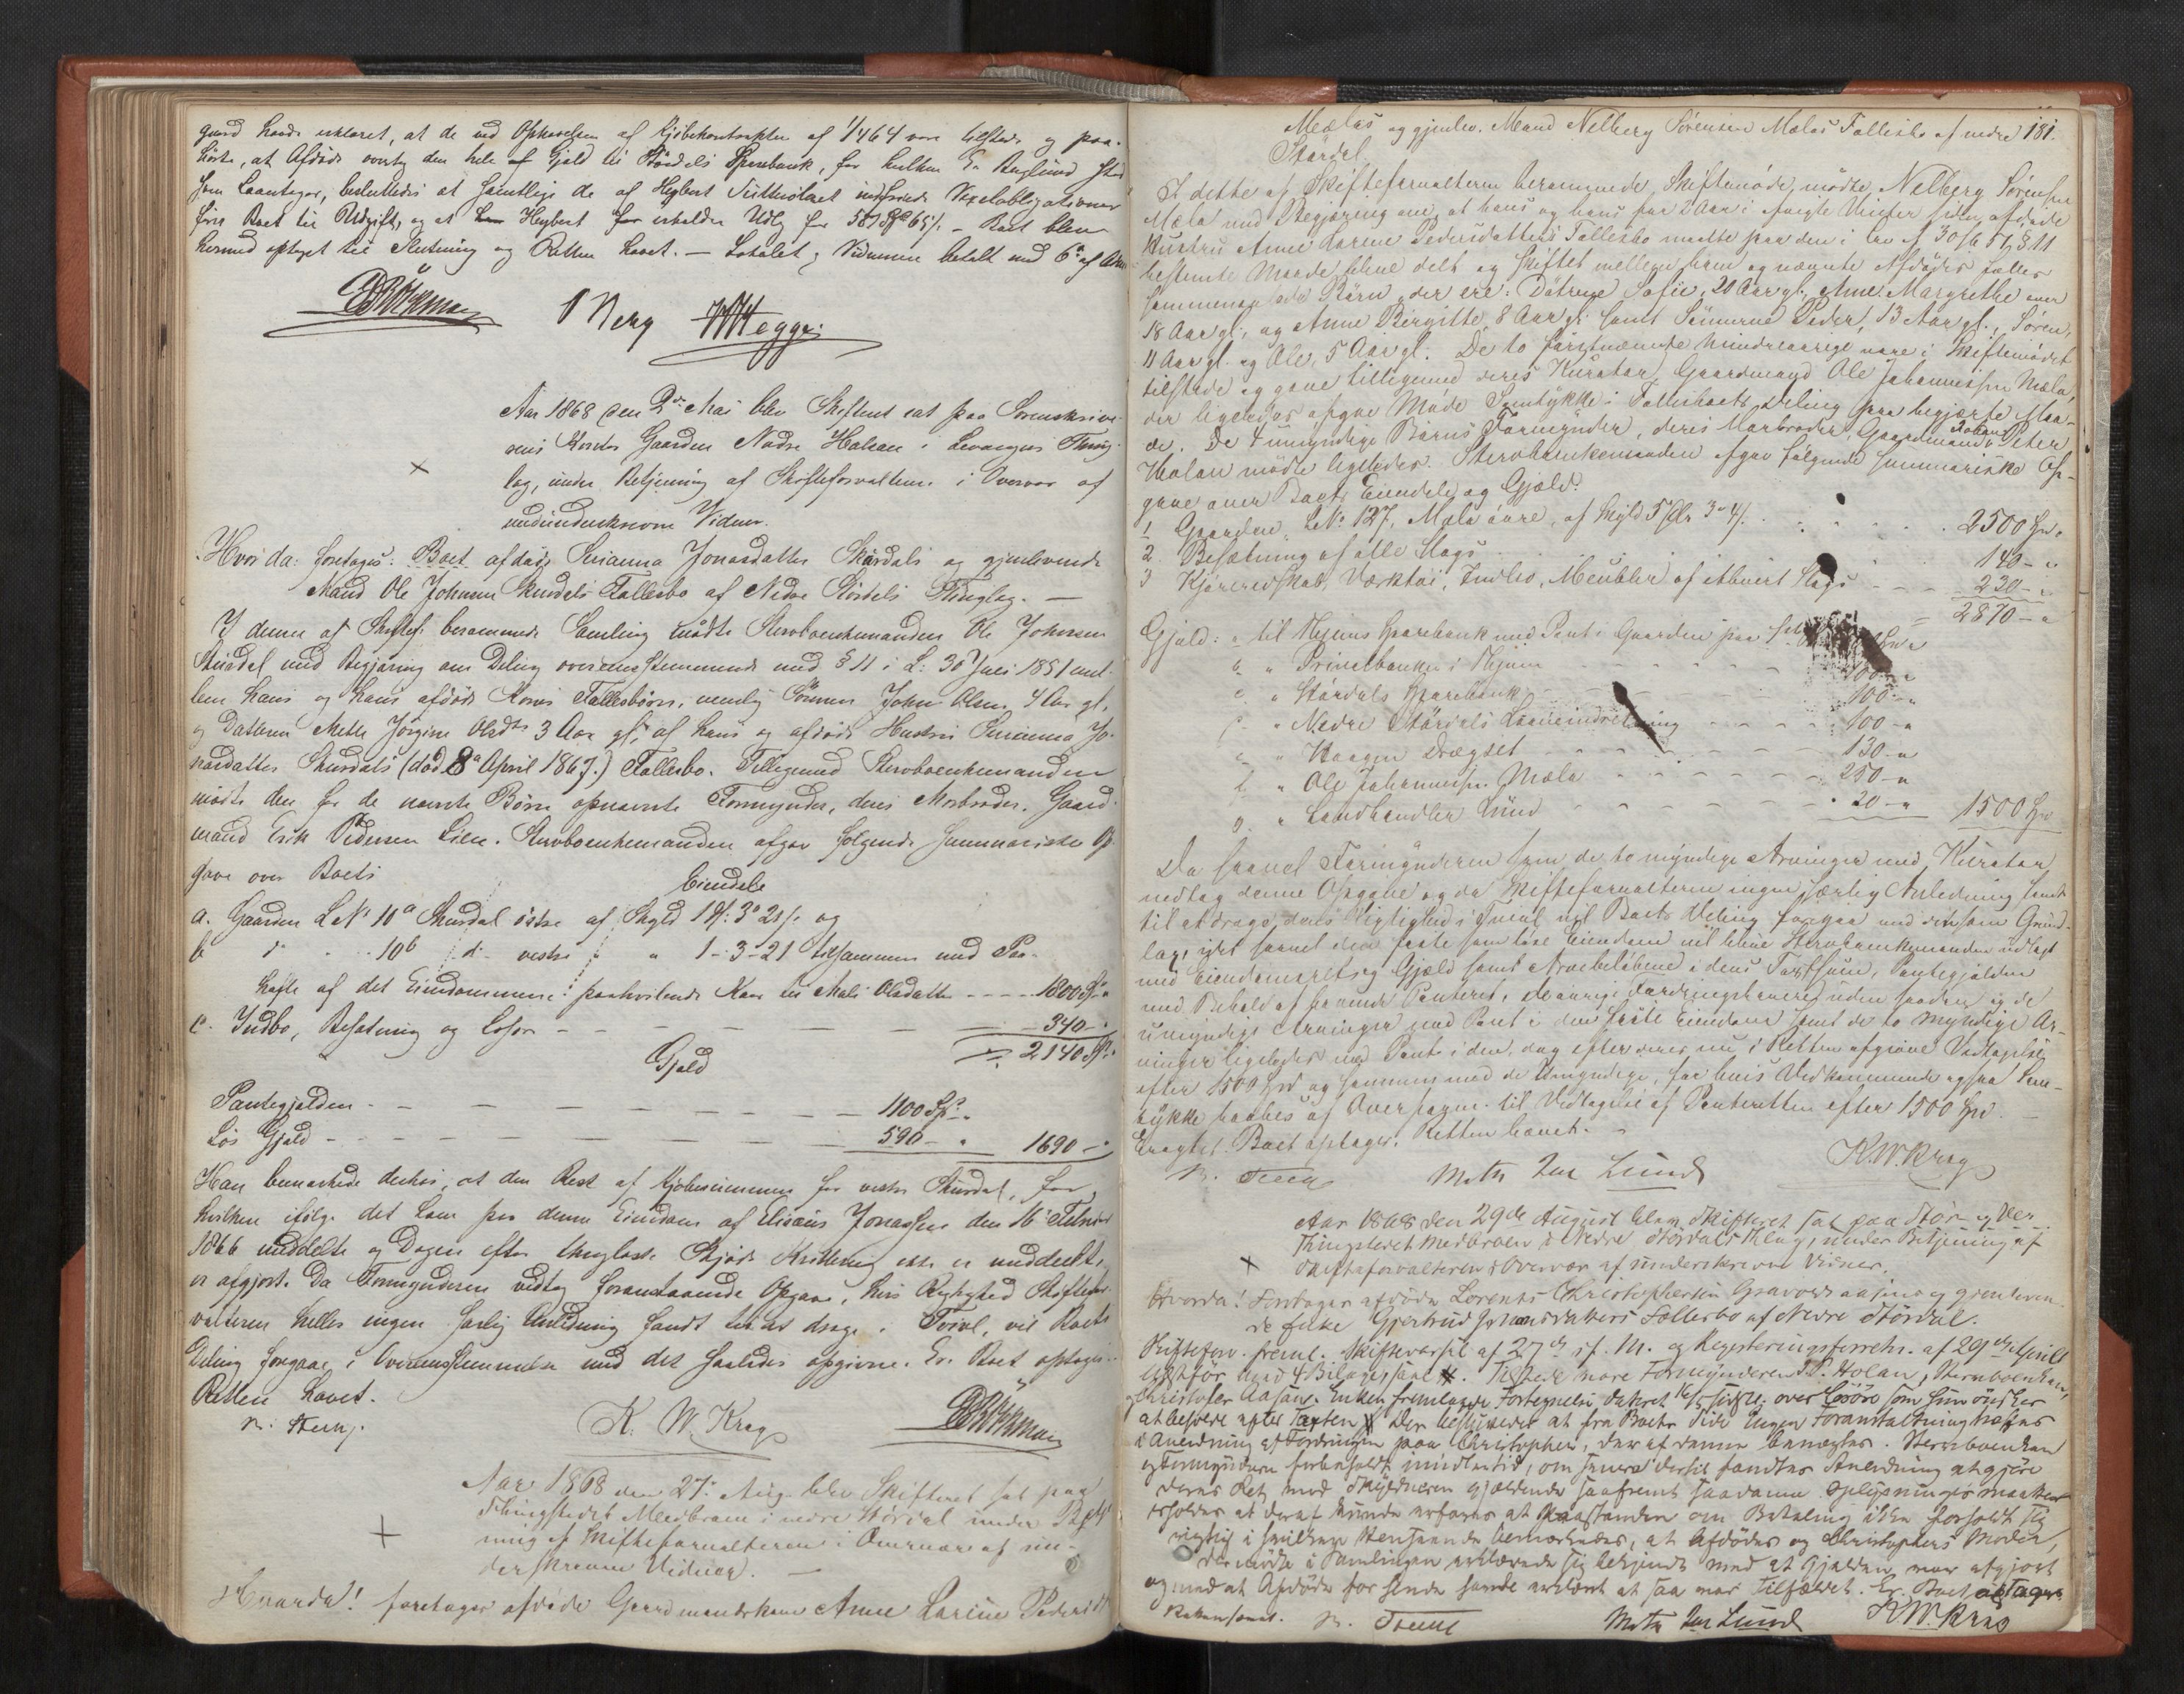 gaard havde erklæret, at de ved Ophævelsen af Kjøbekontrakten af 1/4 64 vare tilstede og paa-
hørte, at Afdøde overtog den hele Gjæld til Størdals Sparebank, for hvilken E. Reglund stod
som Laantager, besluttedes at samtlige de af Heybert indfriede Vexelobligationer
før Boet til Udgift, og at Heybert erholder Udlæg for 65/. - Boet blev
hermed optaget til Slutning og Retten hævet. — Lokalet, Vidnerne betalt med 6
Brökman P Berg Hegge
Aar 1868 den 2den Mai blev Skifteret sat paa Sorenskrive-
rens Kontor Gaarden Nedre Halsan i Levangers Thing-
lag, under Betjening af Skifteforvalteren i Overvær af
undertegnede Vidner.
Hvorda: foretoges: Boet afdøde Serianna Jonasdatter Skurdals og gjenlevende
Mand Ole Johnsen Skurdals Fællesbo af Nedre Størdals Thinglag. —
I denne af Skiftef. berammede Samling mødte Stervboenkemanden Ole Johnsen
Skurdal med Begjæring om Deling overensstemmende med § 11 i L: 30 Juli 1851 mel-
lem ham og hans afdøde Kones Fællesbørn, nemlig Sønnen John Olsen 4 Aar gl.
og Datteren Mette Jørgine Olsdtr 3 Aar gl, af hans og afdøde Hustru Serianna Jo-
nasdatter Skurdals (død 8de April 1867.) Fællesbo. Tilligemed Stervboenkemanden
mødte den for de nævnte Børn opnævnte Formynder, deres Morbroder, Gaard-
mand Erik Pedersen Lien. Stervboenkemanden afgav følgende summariske Op-
gave over Boets
Eiendele
a. Gaarden L.No 10a Skurdal østre af Skyld 1 3 21/. og
b d 10b d vestre " 1-3-21 tilsammen med Paa-
hæfte af det Eiendommene paahvilende Kaar til Mali Olsdatter - - - - 1800 Sp.
c. Indbo, Besætning og Løsøre - - - - 340 -
2140 Sp.
Gjæld
Pantegjælden - - - - 1100 Sp.
Løs Gjæld - - - - 590 - " 1690 -
Han bemærkede derhos, at den Rest af Kjøbesummen for vestre Skurdal, for
hvilken ifølge det ham paa denne Eiendom af Elisæus Jonassen den 16 Februar
1866 meddelte og Dagen efter thinglæste Skjøde Kvittering ikke er meddelt,
er afgjort. Da Formynderen vedtog foranstaaende Opgave, hvis Rigtighed Skiftefor-
valteren heller ingen særlig Anledning fandt til at drage i Tvivl, vil Boets
Deling foregaae i Overensstemmelse med det saaledes opgivne. Er. Boet optages.
Retten hævet.
K. W. Krag Brökman
Aar 1868 den 27. Aug. blev Skifteret sat paa
Thingstedet Medbraae i nedre Størdal under Betje-
ning af Skifteforvalteren i Overvær af un-
derskrevne Vidner. —
Hvorda! foretages afdøde Gaardmandskone Anne Larine Pedersdtr
Mælas og gjenlev. Mand Nelberg Sørensen Mælas Fællesbo af nedre 181.
Størdal
I dette af Skifteforvalteren berammede Skiftemøde mødte Nelberg Sørensen
Mæla med Begjæring om, at hans og hans for 2 Aar i Vinter siden afdøde
Hustru Anne Larine Pedersdatters Fællesbo maatte paa den i Lov af 30/6 51, § 11
bestemte Maade blive delt og skiftet mellem ham og nævnte Afdødes fælles
sammenavlede Børn, der ere: Døtrene Sofie, 20 Aar gl., Anne Margrethe over
18 Aar gl., og Anne Birgitte, 8 Aar gl. samt Sønnerne Peder, 13 Aar gl., Søren,
11 Aar gl. og Ole, 5 Aar gl. De to førstnævnte mindreaarige vare i Skiftemødet
tilstede og gave tilligemed deres Kurator, Gaardmand Ole Johannessen Mæla,
der ligeledes afgav Møde Samtykke i Fællesboets Deling paa begjærte Maa-
de. De 4 umyndige Børns Formynder, deres Morbroder, Gaardmand Johannes Peter
Holan mødte ligeledes. Stervboenkemanden afgav følgende summariske Op-
gave over Boets Eiendele og Gjæld:
1 Gaarden L.No 127, Mæla øvre, af Skyld 5 3 4/. . . 2500 Spd.
2 Besætning af alle Slags . . 140 - "
3 Kjøreredskab, Værktøi, Indbo, Meubler af ethvert Slags - - - 230 - "
= 2870 - "
Gjæld: a til Hegums Sparebank med Pant i Gaarden
b " Privatbanken i Thjem - - - - 100 - "
c " Størdals Sparebank - - - - 100 - "
d " Nedre Størdals Laaneindretning - - - - 100 - "
e " Haagen Drægset - - - - 130 - "
f " Ole Johannessen Mæla - - - - 250 - "
g " Landhandler Lund - - - - 20 - " 1500 Spd
Da saavel Formynderen som de to myndige Arvinger med Kurator
vedtog denne Opgave og da Skifteforvalteren ingen særlig Anledning fandt
til at drage dens Rigtighed i Tvivl vil Boets Deling foregaa med den som Grund-
lag, idet saavel den faste som løse Eiendom vil blive Stervboenkemanden udlagt
med Eiendomsret og Gjæld samt Arvebeløbene i dens Taxtsum, Pantegjælden
med Behold af havende Panteret, de øvrige Fordringshavere uden saadan og de
umyndige Arvinger med Pant i den faste Eiendom samt de to myndige Ar-
vinger ligeledes med Pant i den, dog efter deres nu i Retten afgivne Vedtagelse
efter 1500 Spd og sammen med de Umyndige, for hvis Vedkommende ogsaa Sam-
tykke haabes af Overformr. til Vedtagelse af Panteretten efter 1500 Spd. -
Eragtet. Boet optages. Retten hævet. -
Lund K. W. Krag
Aar 1868 den 29de August blev Skifteret sat paa Stør og Ver
Thingstedet Medbraaen i Nedre Størdals Thlag, under Betjening af
Skifteforvalteren i Overvær af underskrevne Vidner.
Hvorda! Foretages afdøde Lorents Christophersen Gravaasaasens og gjenleven-
de Enke Gjertrud Johnsdatters Fællesbo af Nedre Størdal.
Skiftef. freml. Skiftevarsel af 27de f. M. og Registeringsforretn. af 29de April
med 4 Bilage, saal. Tilstede vare Formynderen J. P. Holan, Stervboenken,
og Christofer Aasans. Enken fremlagde Fortegnelse dateret over Løsøre som hun ønsker
at beholde efter Taxten. Der besluttedes at fra Boets Side ingen Foranstaltning tages
i Anledning af Fordringen paa Christopher, der af denne benægtes. Stervboenken
og Formynderen forbeholdt imidlertid, om senere dertil fandtes Anledning at gjøre
deres Ret mod Skyldneren gjældende saafremt saadanne Oplysninger maatte
erholdes at deraf kunde erfares at Paastanden om Betaling ikke forholdt sig
rigtig i hvilken Henseende bemærkedes, at Afdødes og Christophers Moder,
der mødte i Samlingen erklærede sig bekjendt med at Gjælden var afgjort
og med at Afdøde før sin Død havde erklæret at saa var Tilfældet. Er. Boet optages.
Retten hævet. Lund K. W. Krag